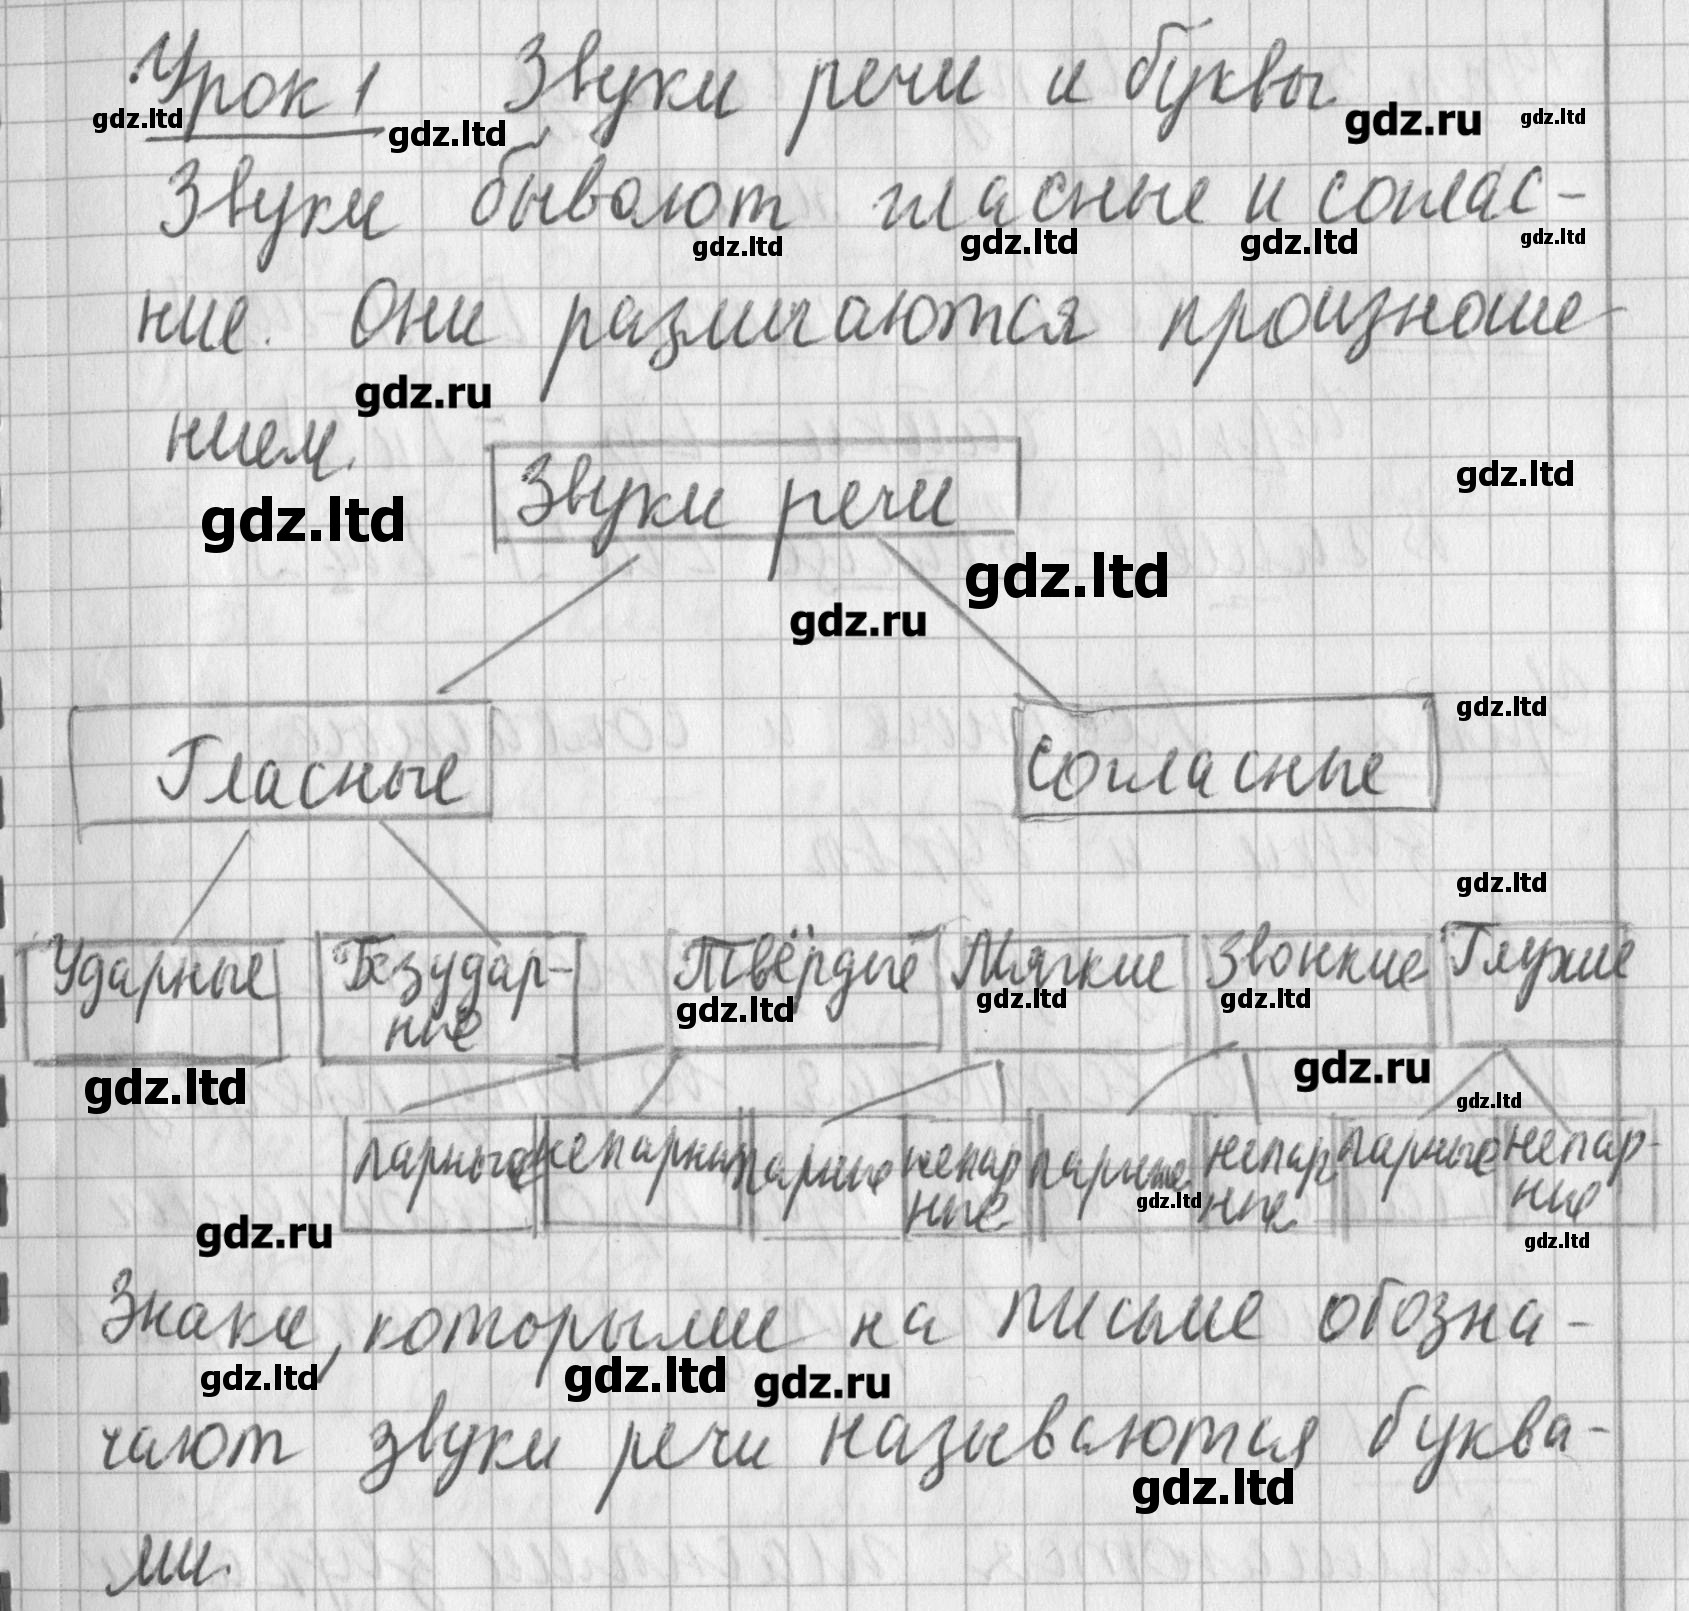 Урок 1 Звуки речи и буквы
gdz.ltd gdz.ltd gdz.ru gdz.ltd
Звуки бывают гласные и соглас-
gdz.ltd gdz.ltd gdz.ltd gdz.ltd
ные. Они различаются произноше
gdz.ru
нием.
Звуки речи
gdz.ltd
gdz.ltd
gdz.ltd
gdz.ru
gdz.ltd
Гласные Согласные
gdz.ltd
Ударные Безудар- Твёрдые Мягкие Звонкие Глухие
ные
gdz.ltd gdz.ltd gdz.ltd
gdz.ltd gdz.ru
gdz.ltd
парные непарные парные непар парные непар парные непар-
ные ные ные
gdz.ltd
gdz.ru gdz.ltd
Знаки, которыми на письме обозна-
gdz.ltd gdz.ltd gdz.ru
чают звуки речи называются буква-
gdz.ltd
ми.